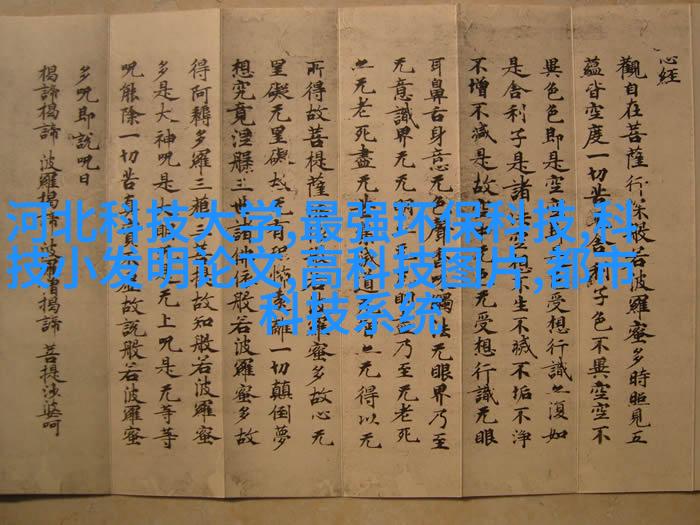 心经
觀自在菩薩行深般若波羅蜜多時照見五
蘊皆空度一切苦舍利子色不異空空不
異色色即是空空受想行識亦復如
是舍利子是諸不生不滅不垢不净
不增不減是故空无受想行識无眼
耳鼻舌身意无色聲觸法无眼界乃至
无意識界无无明盡乃至无老死
亦无老死盡无滅道无亦无得以无
所得故菩提薩般若波羅蜜多故心无
罣礙无罣礙故无有恐怖遠離一切顛倒夢
想究竟涅槃三世諸佛依般若波羅蜜多故
得阿耨多羅三藐三菩提故知般若波羅蜜
多是大神呪是大明无上呪是无等等
呪能除一切苦真實虛故說般若波羅蜜
多呪即說呪曰
揭諦揭諦 波羅揭諦 波羅僧揭諦 菩提沙婆呵
河北科技大学,最强环保科技,科
技小发明论文,高科技图片,都市
科技系统